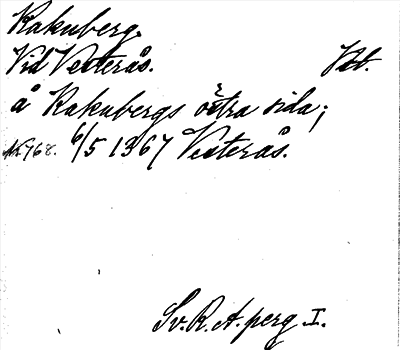 Rakuberg.
Vid Vesterås. Vstl.
å Rakubergs östra sida;
NR768. 6/5 1367 Vesterås.
Sv. R. A. perg I.